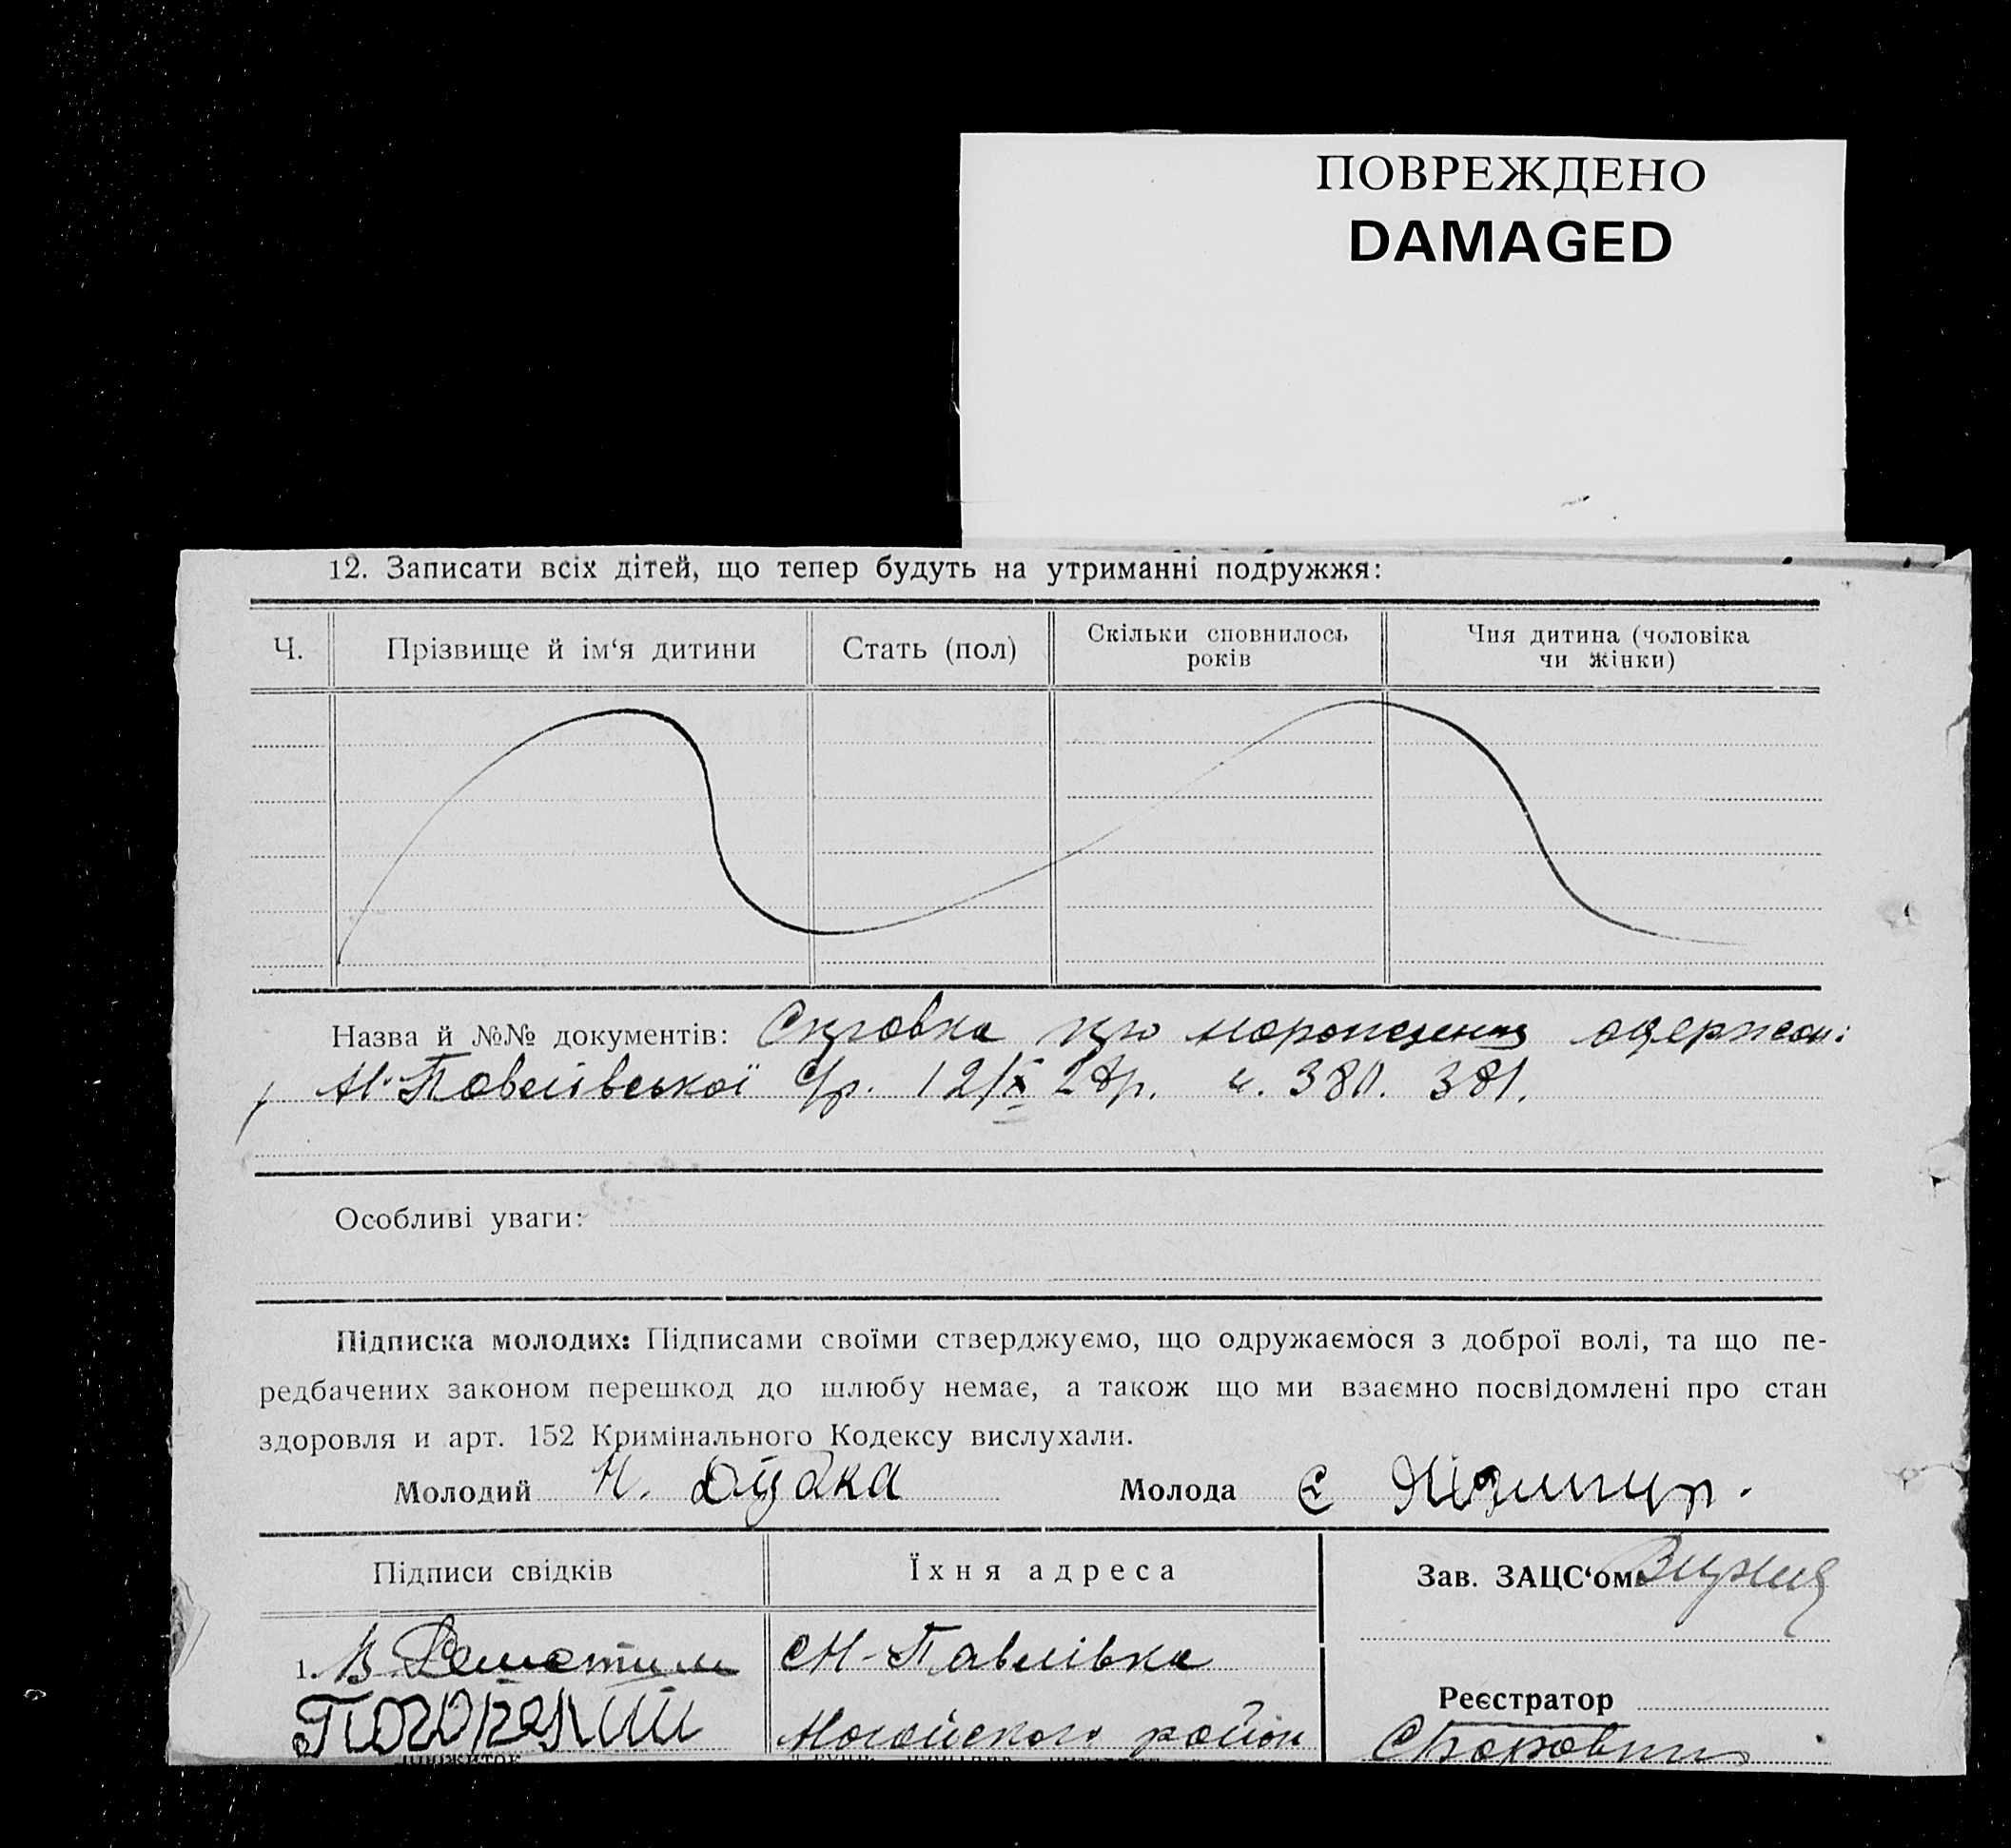 ПОВРЕЖДЕНО
DAMAGED
12. Записати всіх дітей, що тепер будуть на утриманні подружжя:
Ч. Прізвище й ім‘я дитини Стать (пол) Скільки сповнилось років Чия дитина (чоловіка чи жінки)
Назва й №№ документів: Справка про народження одержан:
Н-Павлівської с/р. 12/X 28р. ч. 380. 381.
Особливі уваги:
Підписка молодих: Підписами своїми стверджуємо, що одружаємося з доброї волі, та що пе-
редбачених законом перешкод до шлюбу немає, а також що ми взаємно посвідомлені про стан
здоровля и арт. 152 Кримінального Кодексу вислухали.
Молодий Н. Молода Є
Підписи свідків Їхня адреса Зав. ЗАЦС‘ом
1. В. Н-Павлівка
Реєстратор
Ногайского район